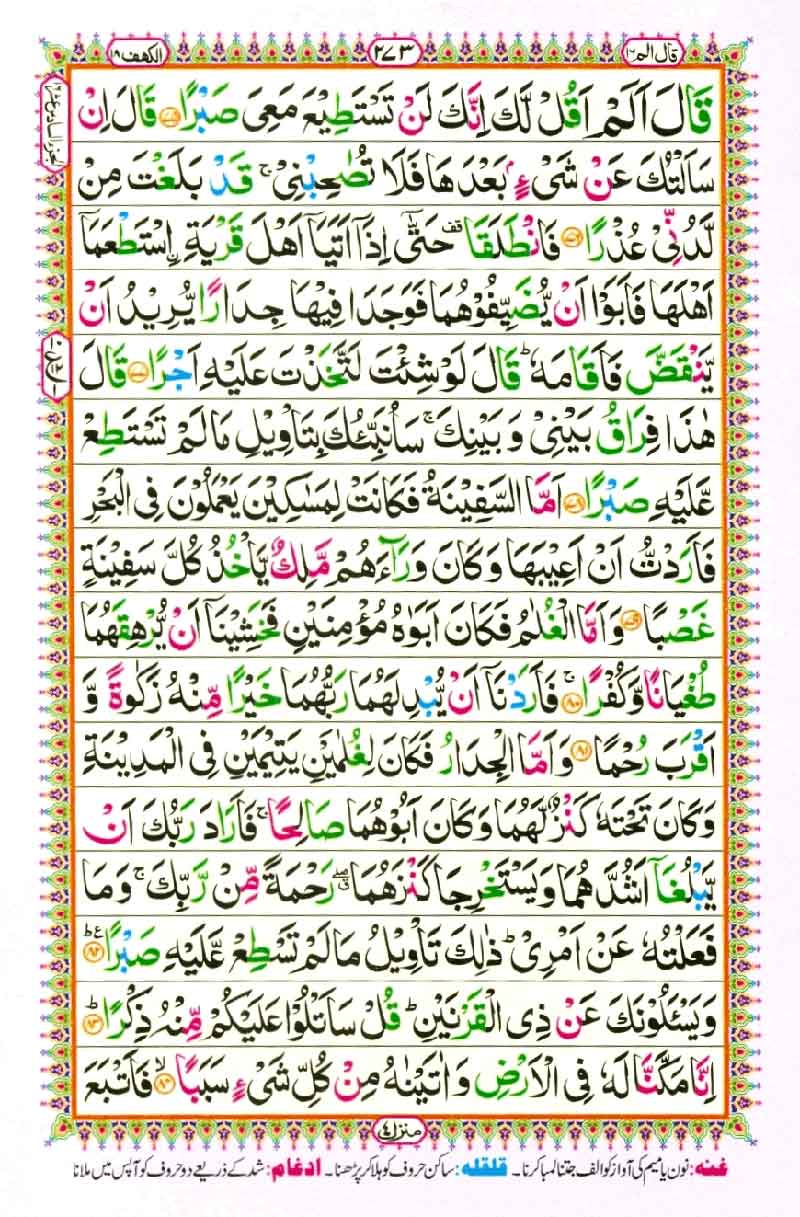 قال الم ١٦
٢٧٣
الكهف ١٨
قَالَ اَلَمْ اَقُلْ لَّكَ اِنَّكَ لَنْ تَسْتَطِيْعَ مَعِىَ صَبْرًا ﴿٧٥﴾ قَالَ اِنْ
سَاَلْتُكَ عَنْ شَىْءٍۢ بَعْدَهَا فَلَا تُصٰحِبْنِىْ ۚ قَدْ بَلَغْتَ مِنْ
لَّدُنِّىْ عُذْرًا ﴿٧٦﴾ فَانْطَلَقَا ࣞ حَتّٰٓى اِذَاۤ اَتَيَاۤ اَهْلَ قَرْيَةِ ۨاسْتَطْعَمَاۤ
اَهْلَهَا فَاَبَوْا اَنْ يُّضَيِّفُوْهُمَا فَوَجَدَا فِيْهَا جِدَارًا يُّرِيْدُ اَنْ
يَّنْقَضَّ فَاَقَامَهٗ ؕ قَالَ لَوْ شِئْتَ لَتَّخَذْتَ عَلَيْهِ اَجْرًا ﴿٧٧﴾ قَالَ
هٰذَا فِرَاقُ بَيْنِىْ وَ بَيْنِكَ ۚ سَاُنَبِّئُكَ بِتَاْوِيْلِ مَا لَمْ تَسْتَطِعْ
عَّلَيْهِ صَبْرًا ﴿٧٨﴾ اَمَّا السَّفِيْنَةُ فَكَانَتْ لِمَسٰكِيْنَ يَعْمَلُوْنَ فِى الْبَحْرِ
فَاَرَدْتُّ اَنْ اَعِيْبَهَا وَ كَانَ وَرَآءَهُمْ مَّلِكٌ يَّاْخُذُ كُلَّ سَفِيْنَةٍ
غَصْبًا ﴿٧٩﴾ وَ اَمَّا الْغُلٰمُ فَكَانَ اَبَوٰهُ مُؤْمِنَيْنِ فَخَشِيْنَاۤ اَنْ يُّرْهِقَهُمَا
طُغْيَانًا وَّ كُفْرًا ﴿٨٠﴾ ۚ فَاَرَدْنَاۤ اَنْ يُّبْدِلَهُمَا رَبُّهُمَا خَيْرًا مِّنْهُ زَكٰوةً وَّ
اَقْرَبَ رُحْمًا ﴿٨١﴾ وَ اَمَّا الْجِدَارُ فَكَانَ لِغُلٰمَيْنِ يَتِيْمَيْنِ فِى الْمَدِيْنَةِ
وَ كَانَ تَحْتَهٗ كَنْزٌ لَّهُمَا وَ كَانَ اَبُوْهُمَا صَالِحًا ۚ فَاَرَادَ رَبُّكَ اَنْ
يَّبْلُغَاۤ اَشُدَّهُمَا وَ يَسْتَخْرِجَا كَنْزَهُمَا ۖ رَحْمَةً مِّنْ رَّبِّكَ ۚ وَ مَا
فَعَلْتُهٗ عَنْ اَمْرِىْ ؕ ذٰلِكَ تَاْوِيْلُ مَا لَمْ تَسْطِعْ عَّلَيْهِ صَبْرًا ﴿٨٢﴾ ؕ ع
وَ يَسْئَلُوْنَكَ عَنْ ذِى الْقَرْنَيْنِ ؕ قُلْ سَاَتْلُوْا عَلَيْكُمْ مِّنْهُ ذِكْرًا ﴿٨٣﴾ ؕ
اِنَّا مَكَّنَّا لَهٗ فِى الْاَرْضِ وَ اٰتَيْنٰهُ مِنْ كُلِّ شَىْءٍ سَبَبًا ﴿٨٤﴾ ۙ فَاَتْبَعَ
منزل ٤
غنه: نون یا میم کی آواز کو الف جتنا لمبا کرنا۔ قلقله: ساکن حروف کو ہلا کر پڑھنا۔ ادغام: شد کے ذریعے دو حروف کو آپس میں ملانا